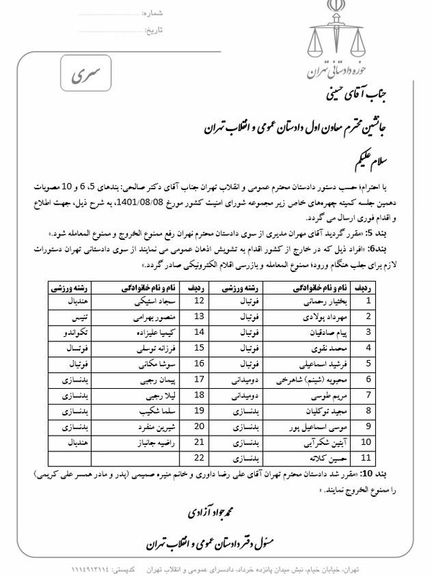 شماره:
تاریخ:
حوزه دادستانی تهران
سری
جناب آقای حسینی
جانشین محترم معاون اول دادستان عمومی و انقلاب تهران
سلام علیکم
با احترام؛ حسب دستور دادستان محترم عمومی و انقلاب تهران جناب آقای دکتر صالحی؛ بندهای 5، 6 و 10 مصوبات
دهمین جلسه کمیته چهره‌های خاص زیر مجموعه شورای امنیت کشور مورخ 1401/08/08، به شرح ذیل، جهت اطلاع
و اقدام فوری ارسال می گردد.
بند 5: «مقرر گردید آقای مهران مدیری از سوی دادستان محترم تهران رفع ممنوع الخروج و ممنوع المعامله شود.»
بند6: «افراد ذیل که در خارج از کشور اقدام به تشویش اذهان عمومی می نمایند از سوی دادستانی تهران دستورات
لازم برای جلب هنگام ورود؛ ممنوع المعامله و بازرسی اقلام الکترونیکی صادر گردد.»
ردیف نام و نام خانوادگی رشته ورزشی ردیف نام و نام خانوادگی رشته ورزشی
1 بختیار رحمانی فوتبال 12 سجاد استیکی هندبال
2 مهرداد پولادی فوتبال 13 منصور بهرامی تنیس
3 پیام صادقیان فوتبال 14 کیمیا علیزاده تکواندو
4 محمد تقوی فوتبال 15 فرزانه توسلی فوتسال
5 فرشید اسماعیلی فوتبال 16 سوشا مکانی فوتبال
6 محبوبه (شبنم) شاهرخی دومیدانی 17 پیمان رجبی بدنسازی
7 مریم طوسی دومیدانی 18 لیلا رجبی بدنسازی
8 مجید توکلیان بدنسازی 19 سلما شکیب بدنسازی
9 موسی اسماعیل پور بدنسازی 20 شیرین منفرد بدنسازی
10 آبتین شکرآبی بدنسازی 21 راضیه جانباز هندبال
11 حسین کلاته بدنسازی 22
بند 10: «مقرر شد دادستان محترم تهران آقای علی رضا داوری و خانم منیره صمیمی (پدر و مادر همسر علی کریمی)
را ممنوع الخروج نمایند. »
محمدجواد آزادی
مسئول دفتر دادستان عمومی و انقلاب تهران
تهران، خیابان خیام، نبش میدان پانزده خرداد، دادسرای عمومی و انقلاب تهران کدپستی: ۱۱۱۴۹۱۳۱۱۴